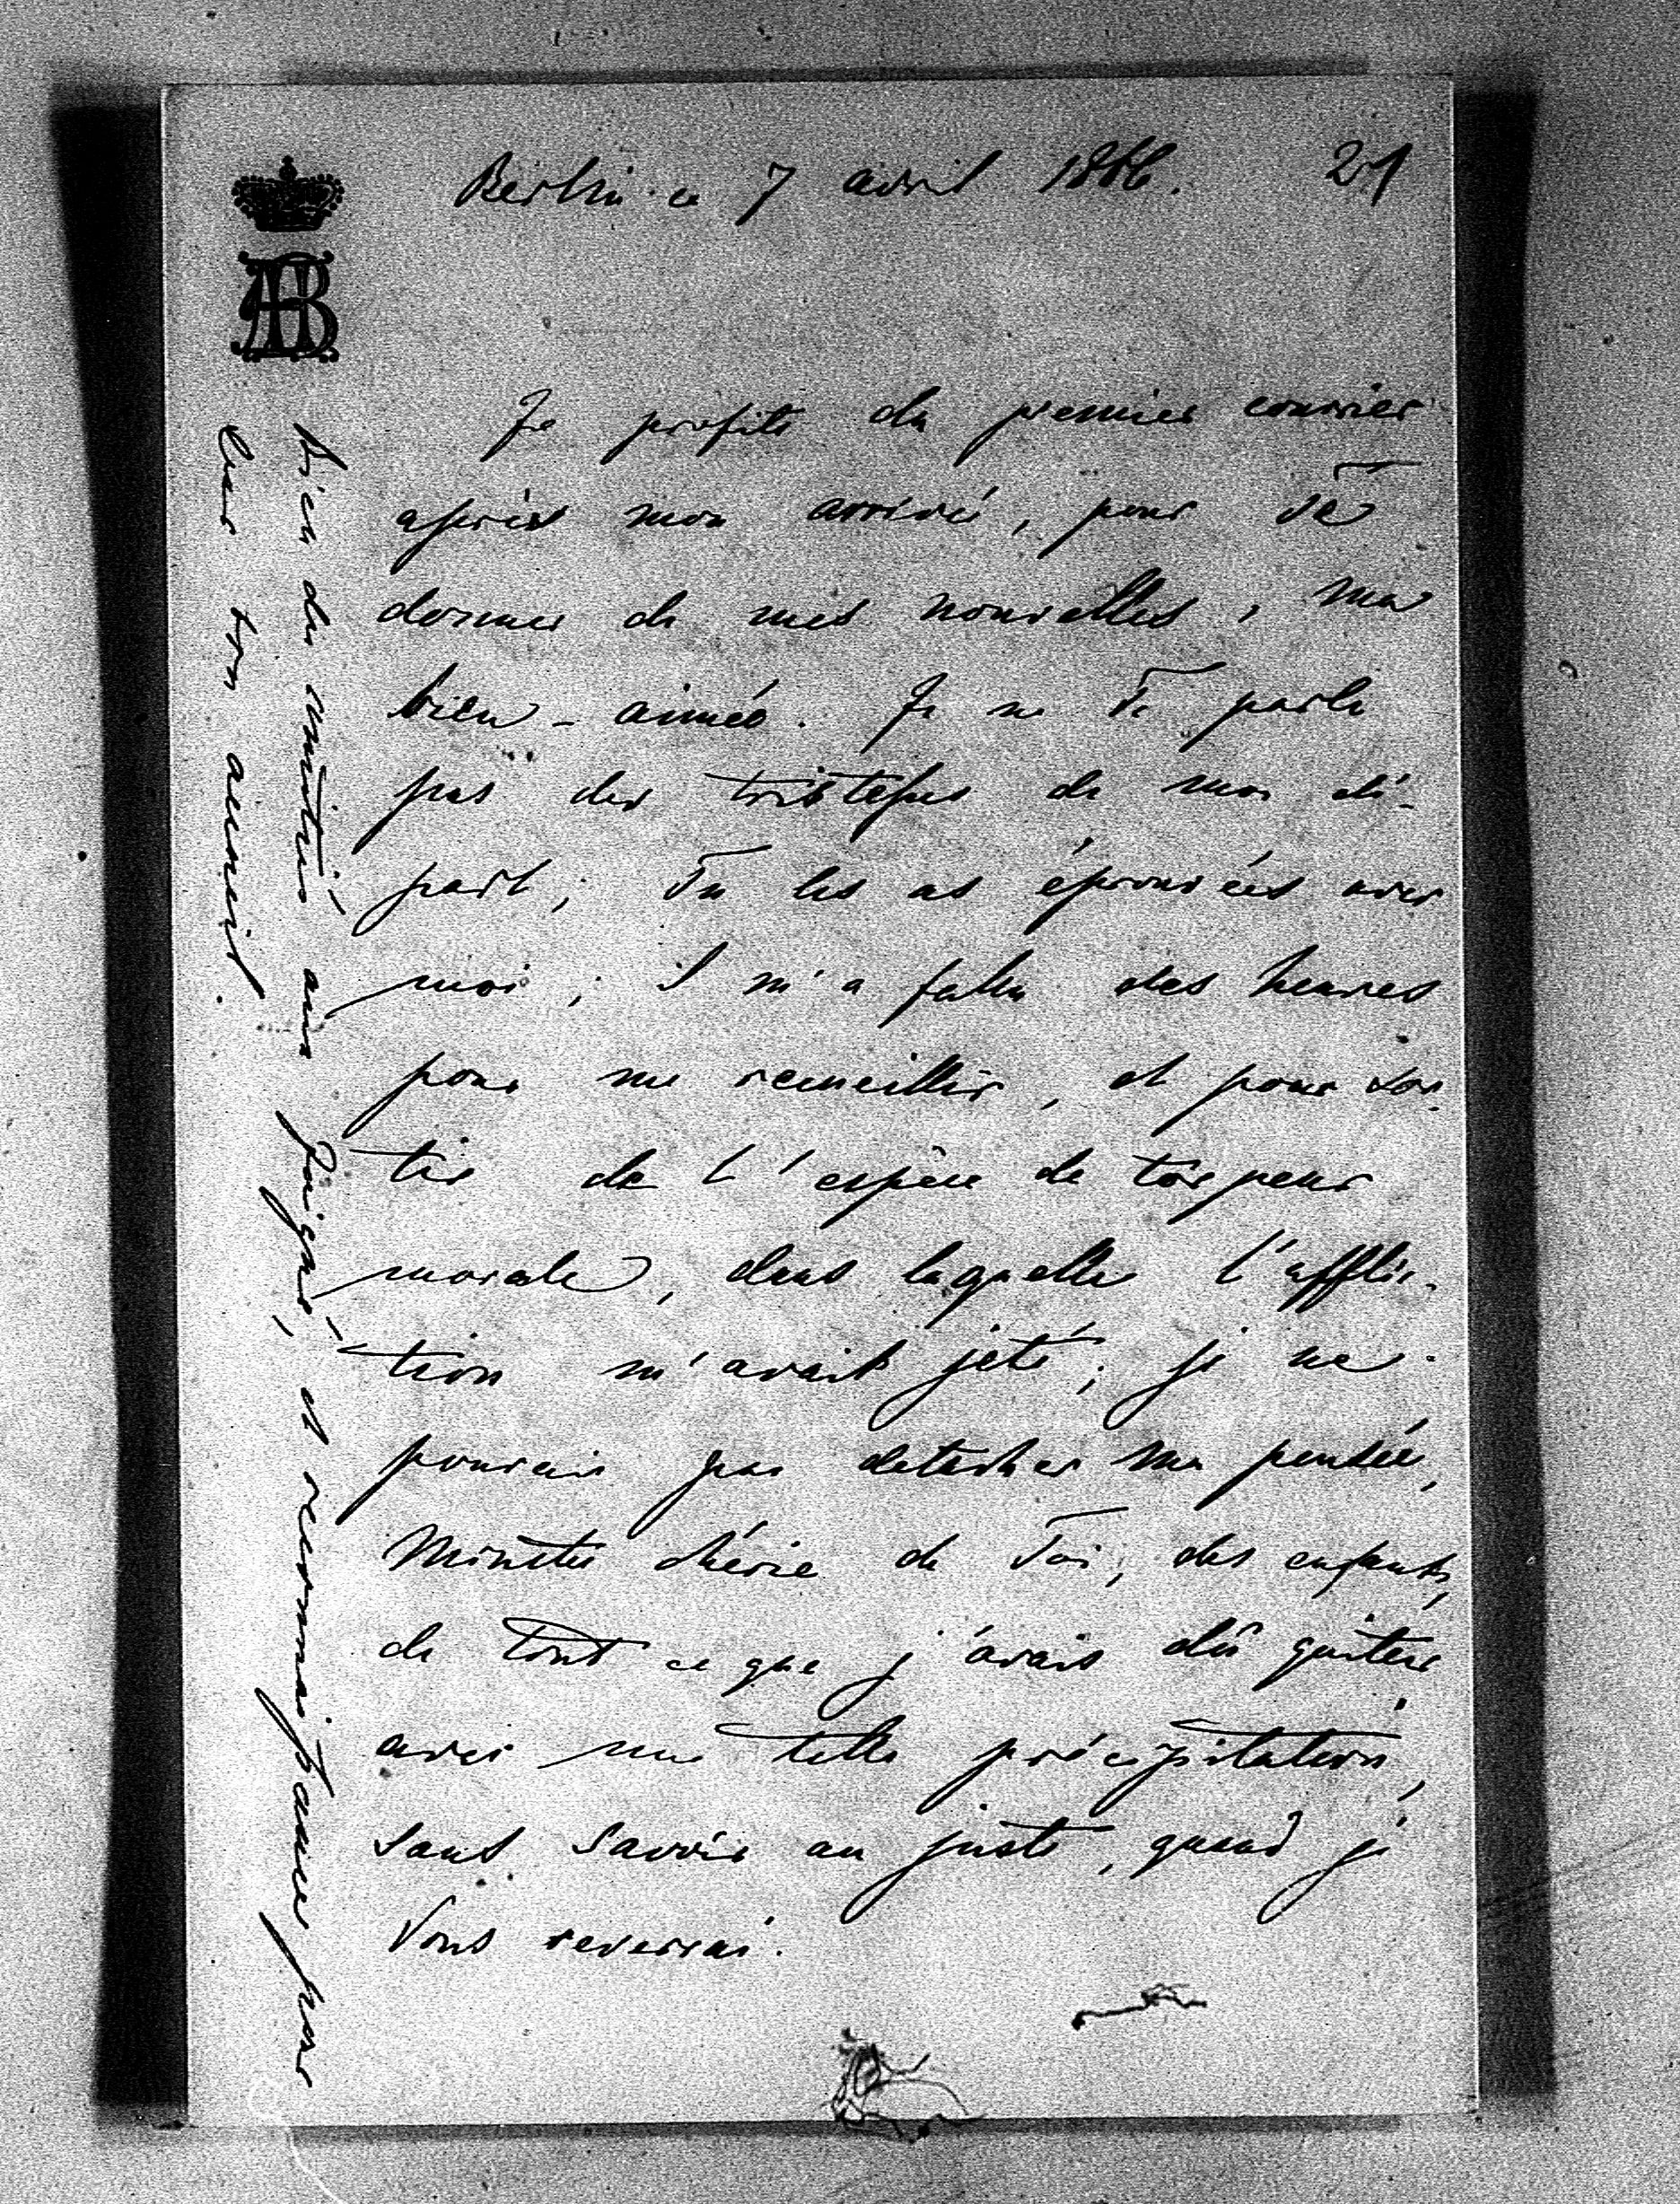 Berlin ce 7 avril 1866. 21
AB
Je profite du premier courrier
après mon arrivée, pour Te
donner de mes nouvelles, ma
bien-aimée. Je ne Te parle
pas des tristesses de mon dé-
part; Tu les as éprouvées avec
moi; il m'a fallu des heures
pour me recueillir, et pour sor-
tir de l'espèce de torpeur
morale, dans laquelle l'afflic-
tion m'avait jeté; je ne
pouvais pas détacher ma pensée,
Minette chérie de Toi, des enfants,
de tout ce que j'avais dû quitter
avec une telle précipitation,
sans savoir au juste, quand je
Vous reverrai.
bien des amitiés aux et reconnaissance pour
leur bon accueil.